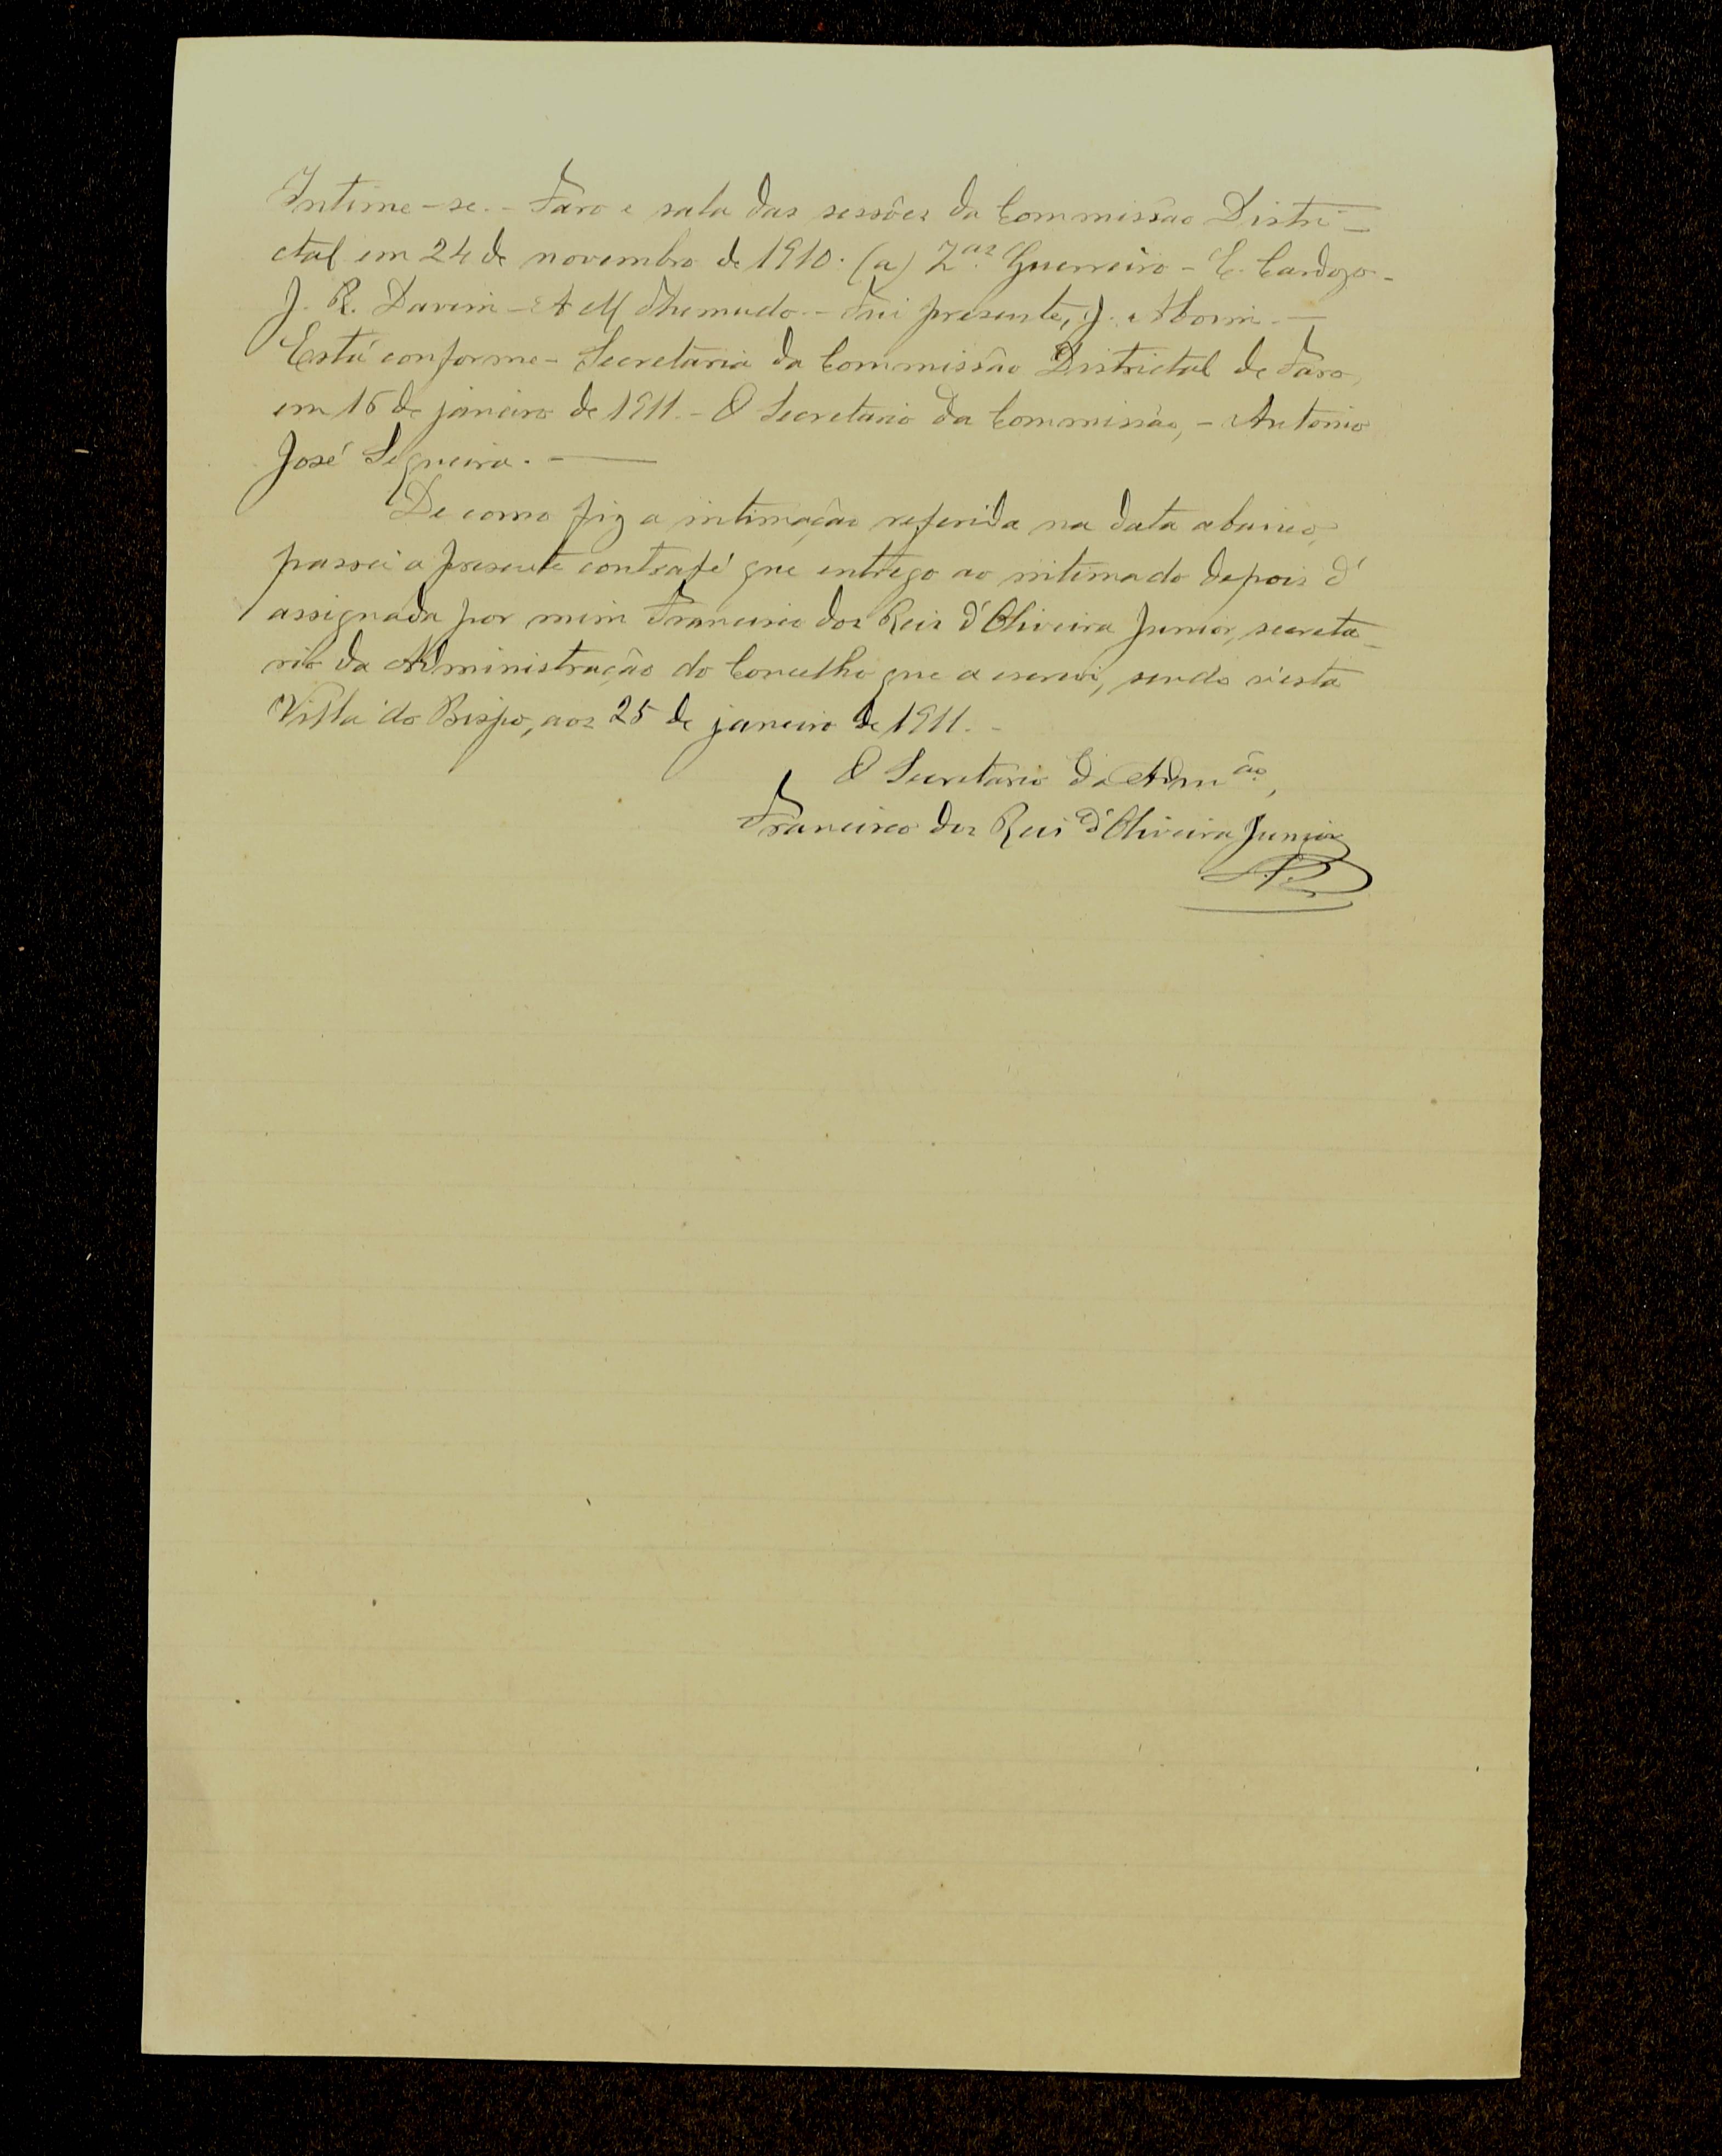 Intime-se. - Faro e sala das sessões da Commissão Distri-
ctal em 24 de novembro de 1910. (a) Z.as Guerreiro - E. Cardozo -
J. R. Davim - A M Themudo. - Fui presente, J. Aboim. -
Está conforme - Secretaria da Commissão Districtal de Faro,
em 16 de janeiro de 1911. - O Secretario da Commissão, - Antonio
José Sequeira. -
De como fiz a intimação referida na data abaixo,
passei a presente contrafé que entrego ao intimado depois d'
assignada por mim Francisco dos Reis d'Oliveira Junior, secreta-
rio da Administração do Concelho que a escrevi, sendo n'esta
Villa do Bispo, aos 25 de janeiro de 1911. -
O Secretario da Adm.ão,
Francisco dos Reis d'Oliveira Junior